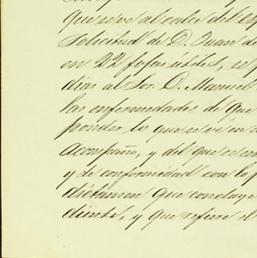 que sirve al calce del es
solicitud de D. Juan de
en 22 fojas útiles, se p
dias al Sor. D. Manuel
las enfermedades de que
ponder, lo que se vé en
acompaño, y del que
y de conformidad con la p
dictamen que concluye
diente, y que refiere el